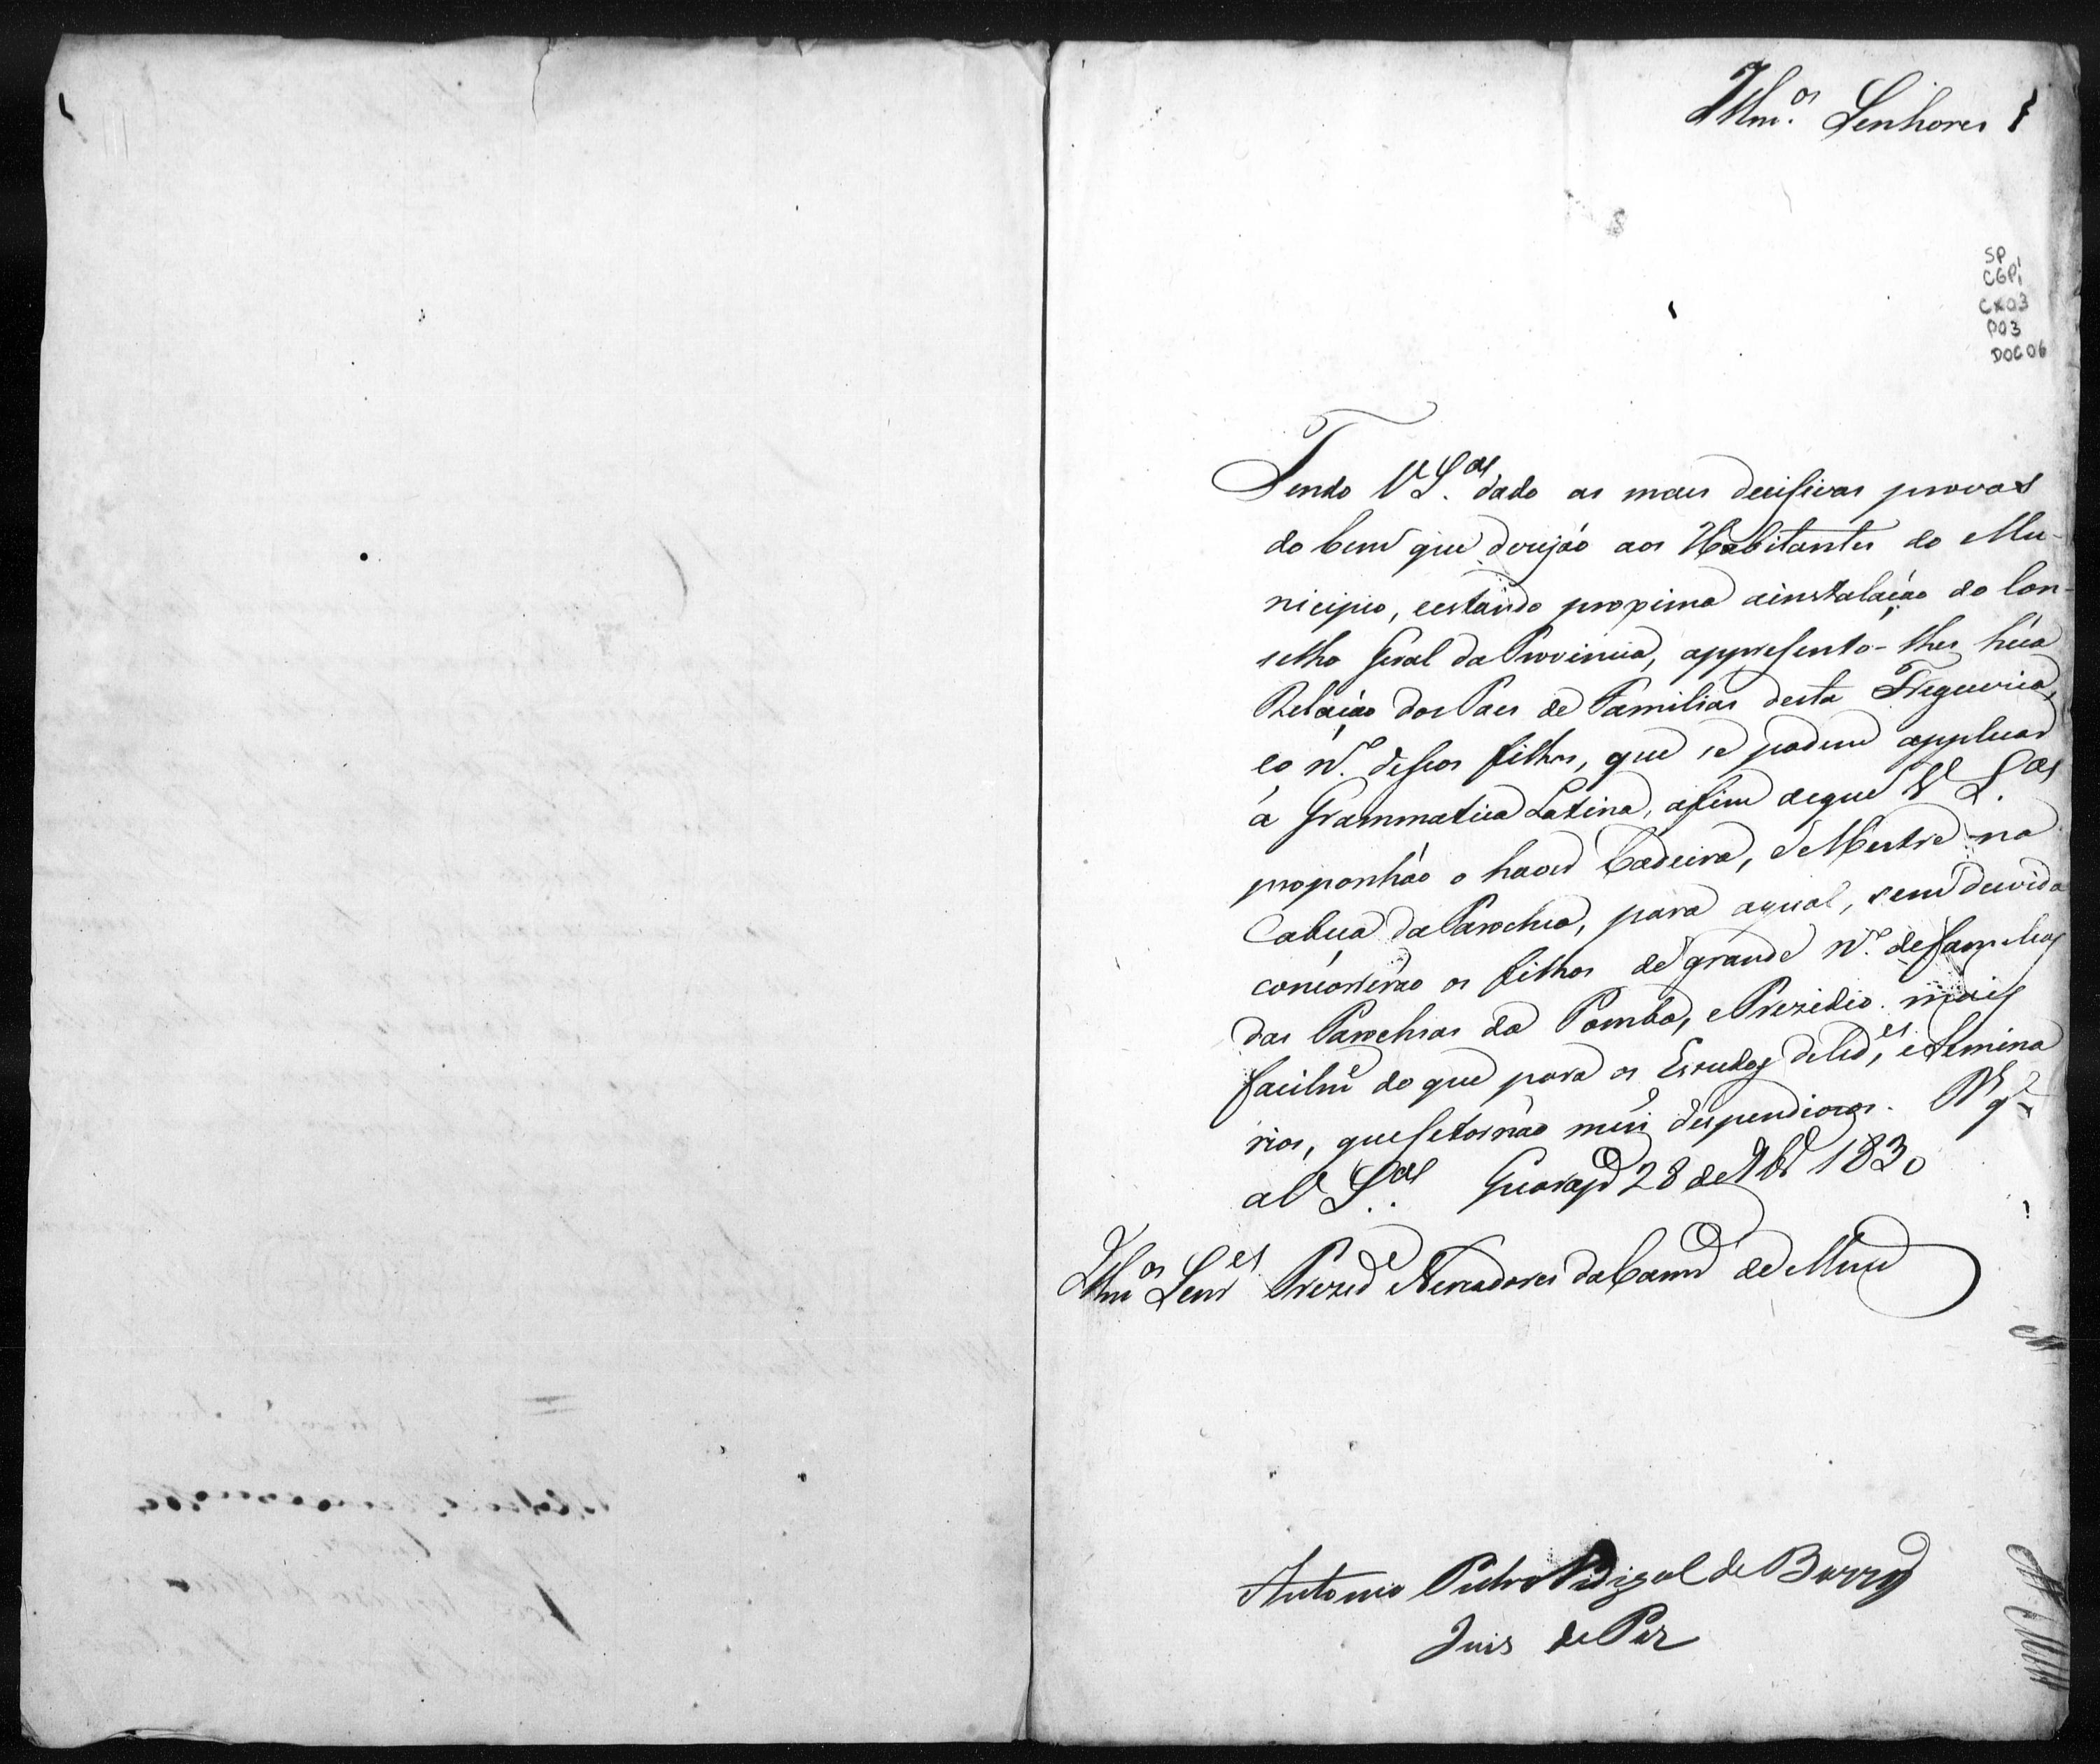 Illm.os Senhores
SP
CGP1
CX03
P03
DOC06
Tendo V S.as dado as mais decisivas provas
do bem que desejáo aos Habitantes do Mu-
nicipio, eestando proxima ainstalação do Con-
selho Geral da Provincia, appresento-lhes hũa
Relação dos Paes de Familias desta Freguezia,
eo N.o deseos filhos, que se podem applicar
á Grammatica Latina, afim deque V S.as
proponháo o haver Cadeira, e Mestre na
Cabeça da Parochia, para aqual, sem duvida
concorreráo os filhos de grande N.o defamilias
das Parochias da Pomba, e Prezidio mais
facilm.e do que para os Estudos deCid.es, eSemina
rios, quesetornáo mui dispendiosos. D.s g.e
a V S.as Guarap.a 28 de 9br.o 1830
Illm.os Senr.es Prezid.e e Vereadores daCam.a de
Antonio Pedro Vidigal de Barros
Juis de Pas